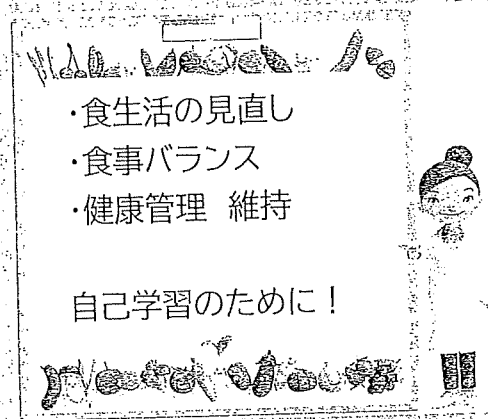 ・食生活の見直し
・食事バランス
・健康管理 維持
自己学習のために！